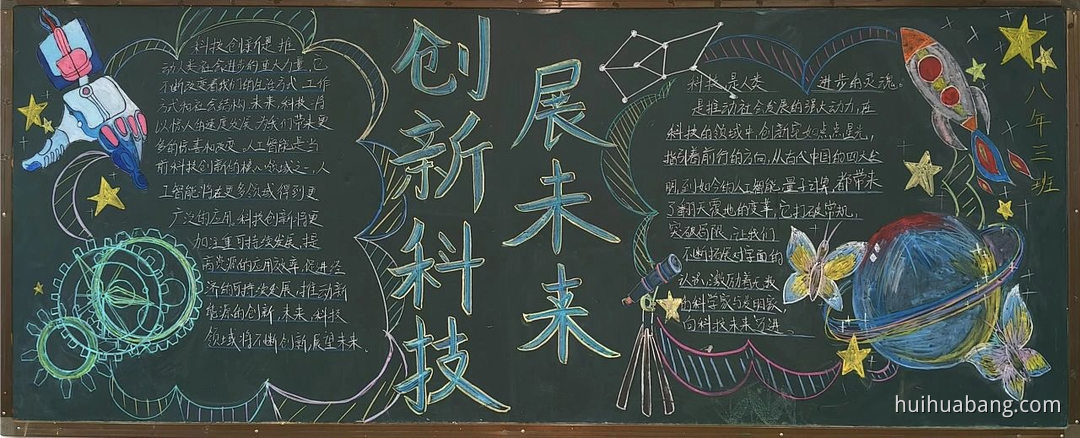 科技创新是推
动人类社会进步的重大力量,它
不断改变着我们的生活方式、工作
方式和社会结构,未来,科技将
以惊人的速度发展,为我们带来更
多的惊喜和改变。人工智能是当
前科技创新的核心领域之一,人
工智能将在更多领域得到更
广泛的应用,科技创新将更
加注重可持续发展,提
高资源的应用效率,促进经
济的可持续发展,推动新
能源的创新,未来,科技
领域将不断创新,展望未来。
创新科技
展未来
科技是人类 进步的灵魂。
是推动社会发展的强大动力,在
科技的领域中,创新宛如点点星光,
指引着前行的方向,从古代中国的四大发
明到如今的人工智能、量子计算,都带来
了翻天覆地的变革,它打破常规,
突破局限,让我们
不断拓展对宇宙的
认识,激励着无数
的科学家与发明家,
向科技未来前进。
八年三班
huihuabang.com